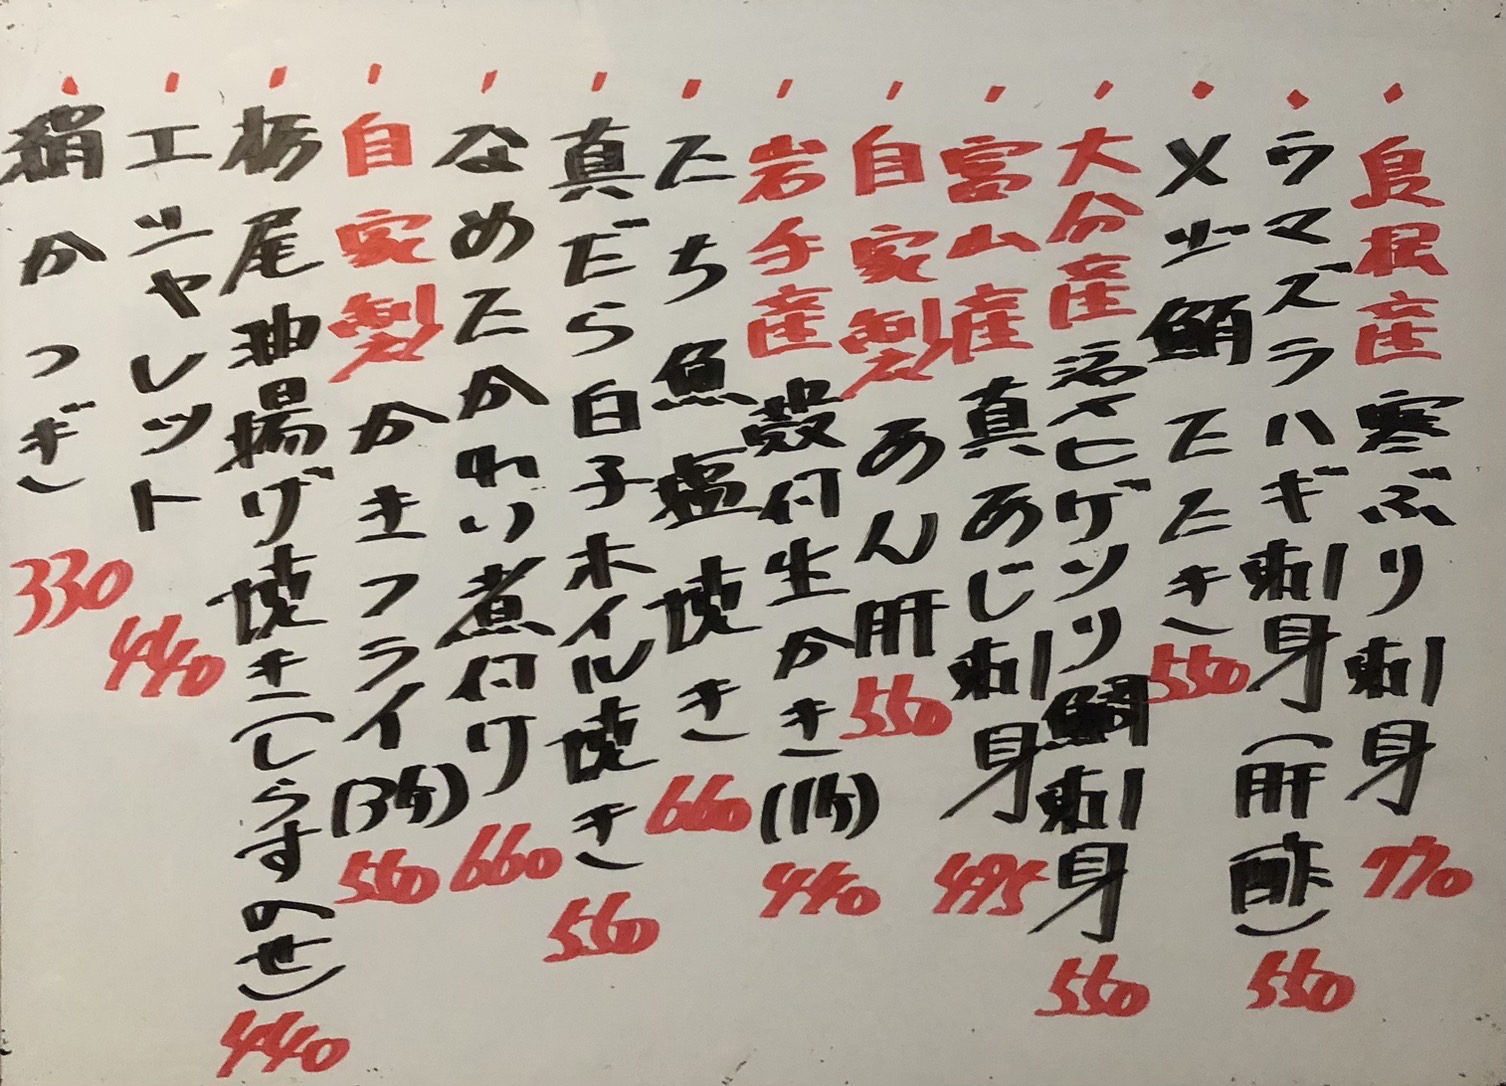 ・島根産 寒ぶり刺身 770
・ウマズラハギ刺身(肝酢) 550
・メジ鮪 たたき 550
・大分産 活〆ヒゲソリ鯛刺身 550
・富山産 真あじ刺身 495
・自家製 あん肝 550
・岩手産 殻付生かき(1ケ) 440
・たち魚塩焼き 660
・真だら白子ホイル焼き 550
・なめたかれい煮付け 660
・自家製 かきフライ(3ケ) 550
・栃尾油揚げ焼き(しらすのせ) 440
・エシャレット 440
・絹かつぎ 330